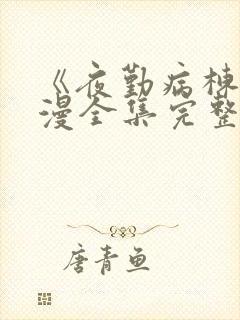 《夜勤病栋
漫全集完整
唐青鱼